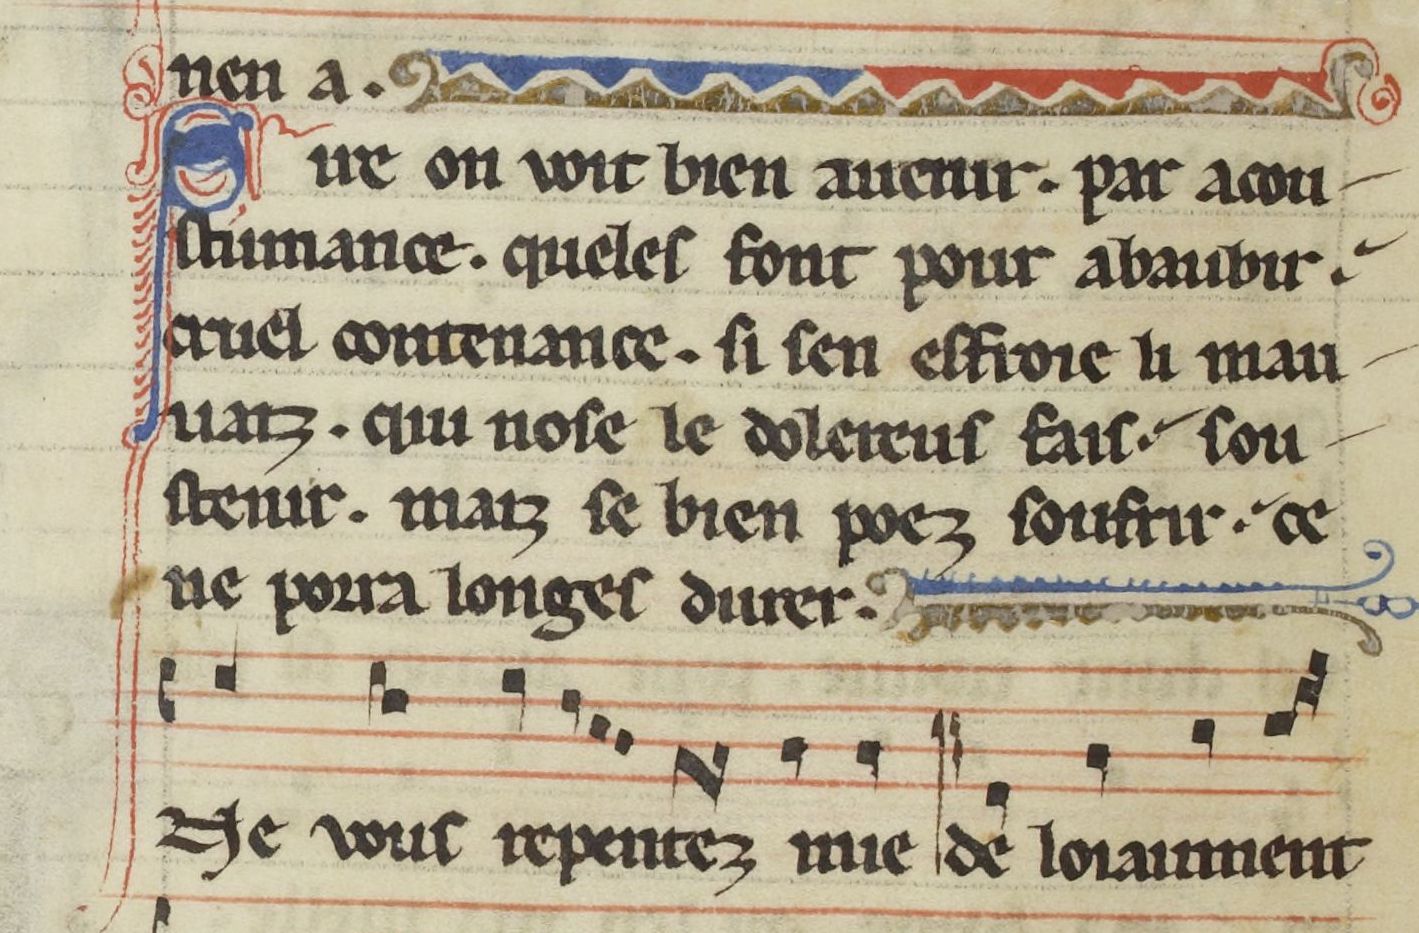 nen a.
Pire on voit bien auenir. par acou
stumance. queles font pour abaubir.
cruel contenance. si sen esfroie li mau
uaiz. qui nose le dolereus fais. sou
stenir. maiz se bien poez soufrir. ce
ne porra longes durer.
Ne vous repentez mie de loiaument